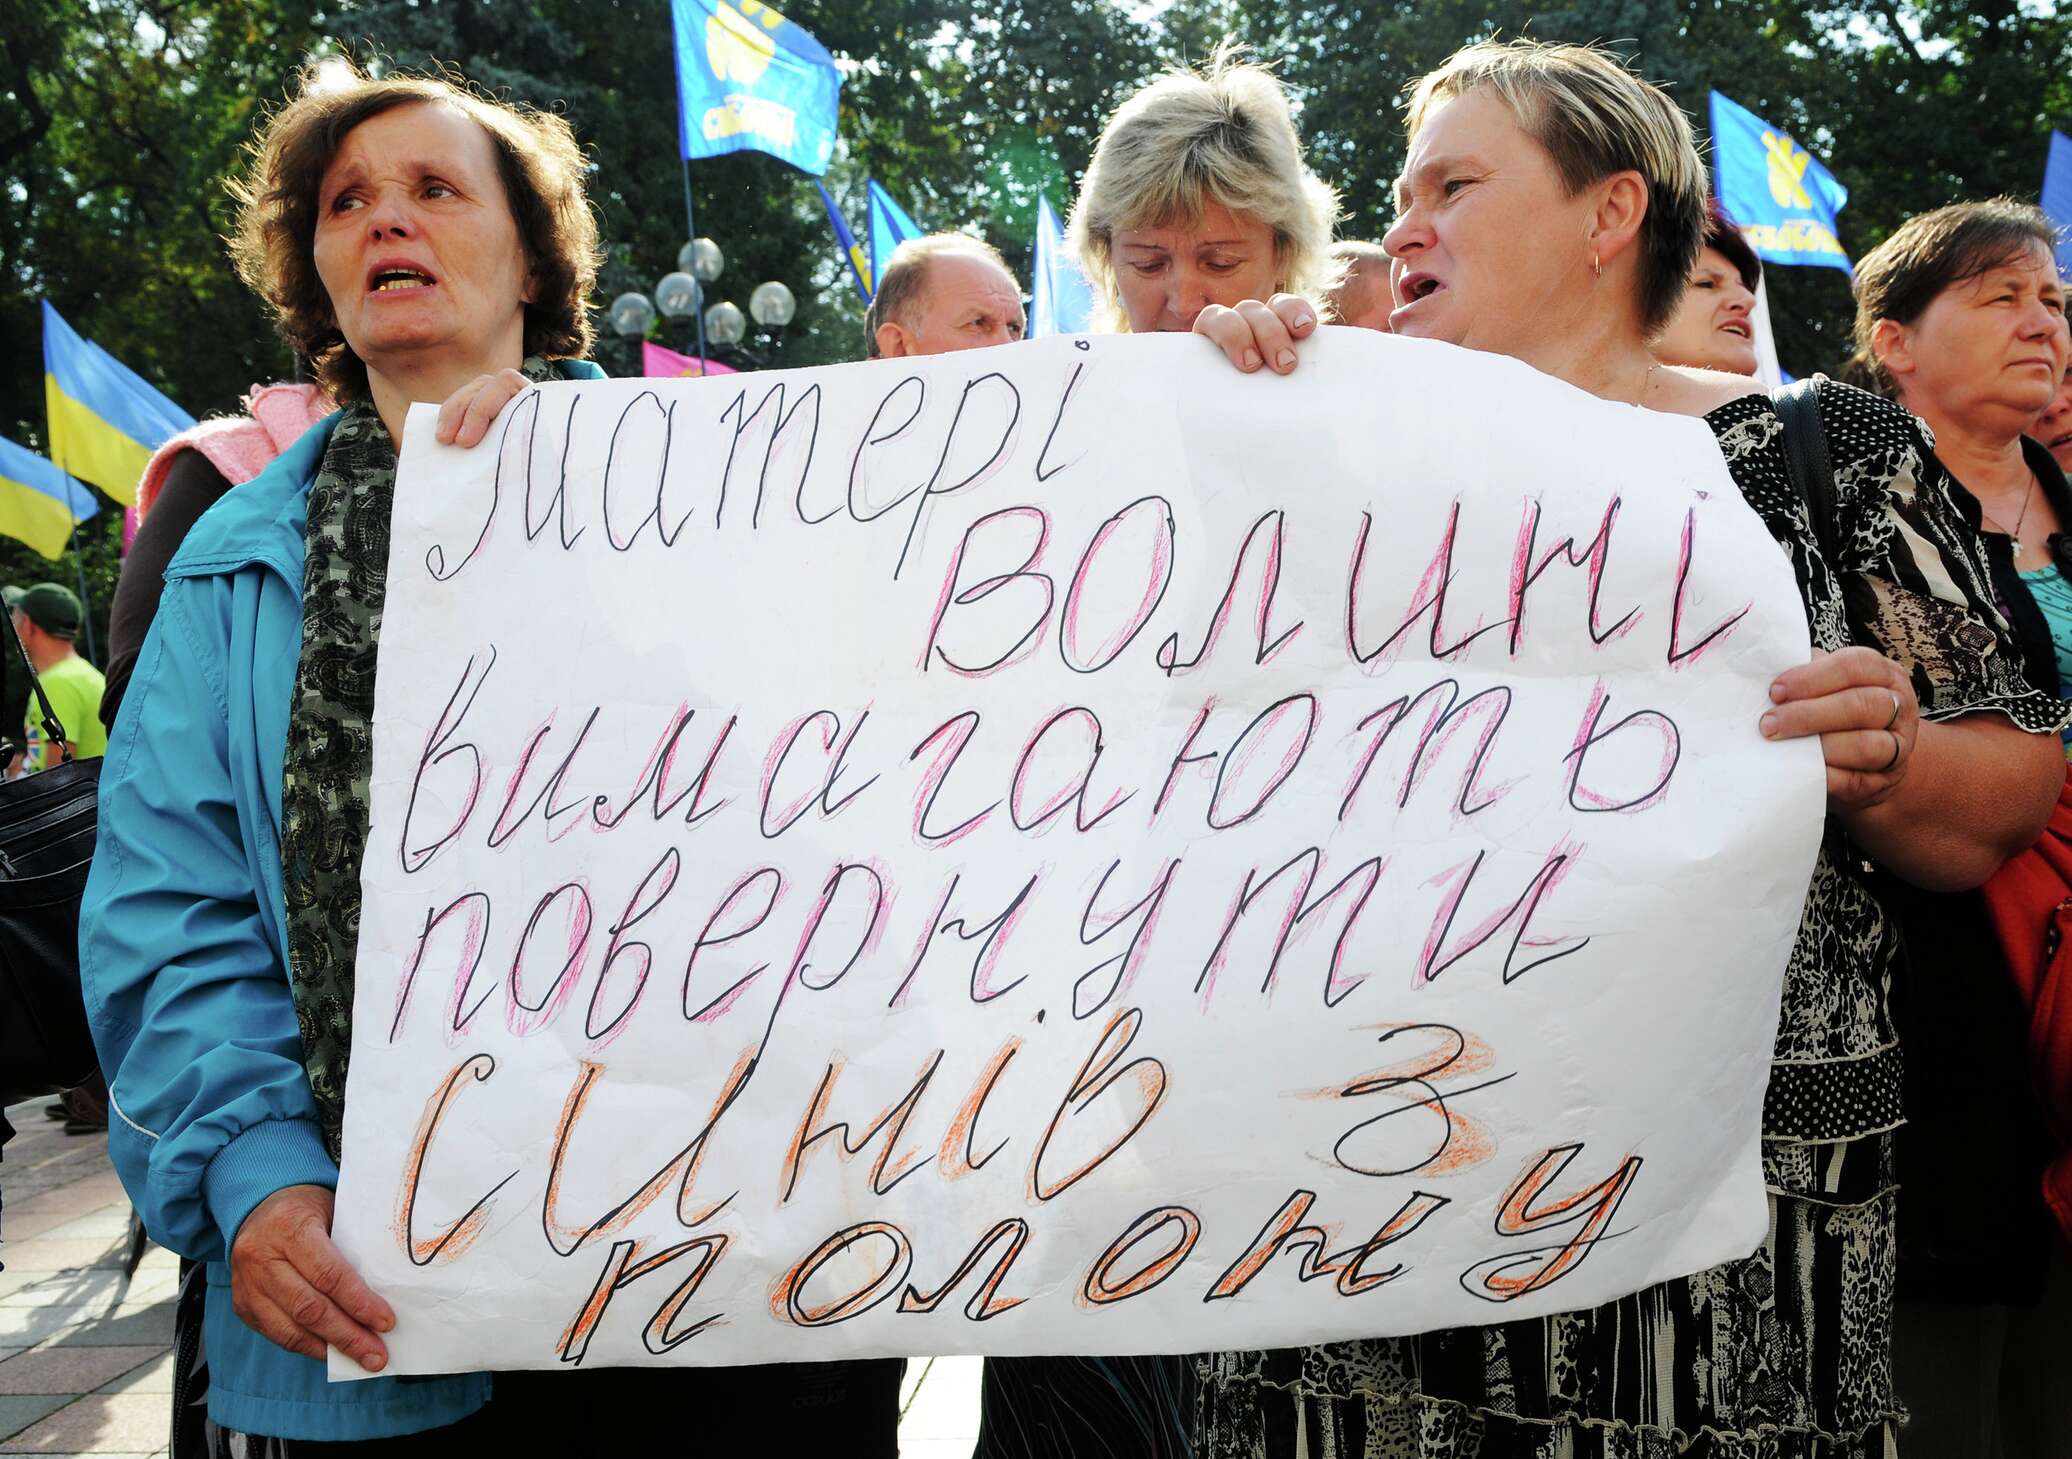 матері
Волині
вимагають
повернути
синів з
полону
СВОБОДА
СВОБОДА